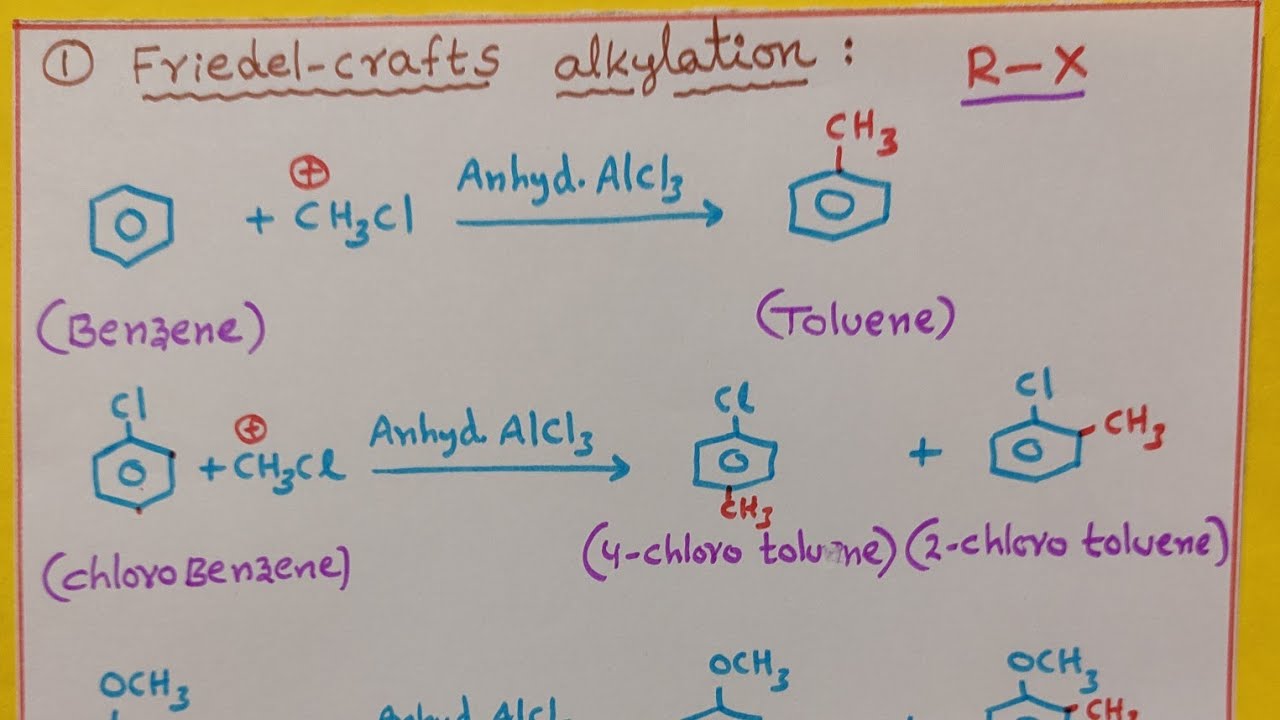 ① Friedel-crafts alkylation : R-X
CH3
⊕
+ CH3Cl Anhyd. AlCl3
(Benzene) (Toluene)
Cl Cl Cl
⊕
+ CH3Cl Anhyd. AlCl3 + CH3
CH3
(chloro Benzene) (4-chloro toluene) (2-chloro toluene)
OCH3 OCH3 OCH3
Anhyd. AlCl + CH3